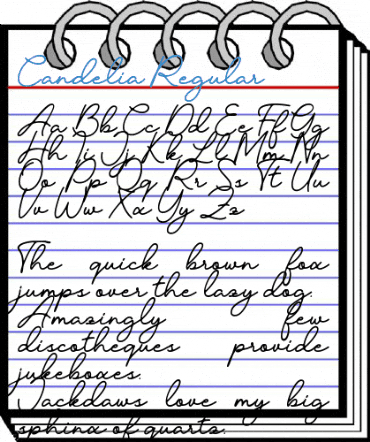 Candelia Regular
Aa Bb Cc Dd Ee Ff Gg
Hh Ii Jj Kk Ll Mm Nn
Oo Pp Qq Rr Ss Tt Uu
Vv Ww Xx Yy Zz
The quick brown fox
jumps over the lazy dog.
Amazingly few
discotheques provide
jukeboxes.
Jackdaws love my big
sphinx of quartz.